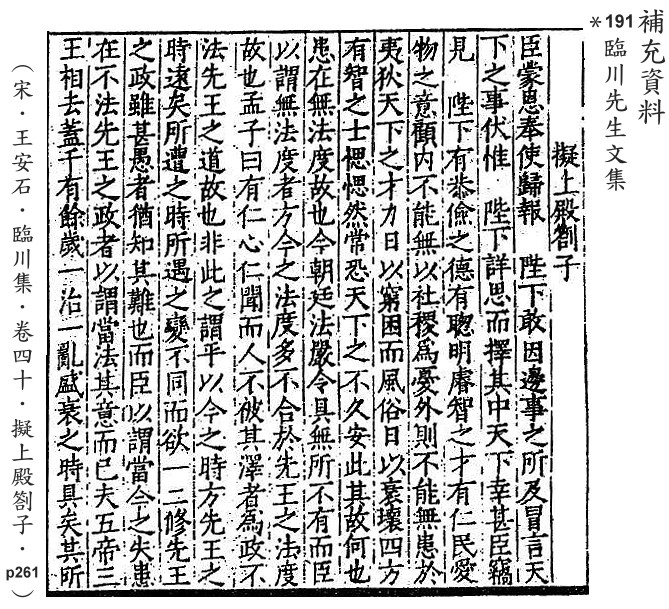 補充資料
*191 臨川先生文集
擬上殿劄子
臣蒙恩奉使歸報 陛下敢因邊事之所及冒言天
下之事伏惟 陛下詳思而擇其中天下幸甚臣竊
見 陛下有恭儉之德有聰明睿智之才有仁民愛
物之意顧內不能無以社稷為憂外則不能無患於
夷狄天下之才力日以窮困而風俗日以衰壞四方
有智之士愢愢然常恐天下之不久安此其故何也
患在無法度故也今朝廷法嚴令具無所不有而臣
以謂無法度者方今之法度多不合於先王之法度
故也孟子曰有仁心仁聞而人不被其澤者為政不
法先王之道故也非此之謂乎以今之時方先王之
時遠矣所遭之時所遇之變不同而欲一二修先王
之政雖甚愚者猶知其難也而臣以謂當今之失患
在不法先王之政者以謂當法其意而已夫五帝三
王相去蓋千有餘歲一治一亂盛衰之時具矣其所
（宋．王安石．臨川集．卷四十．擬上殿劄子．p261）